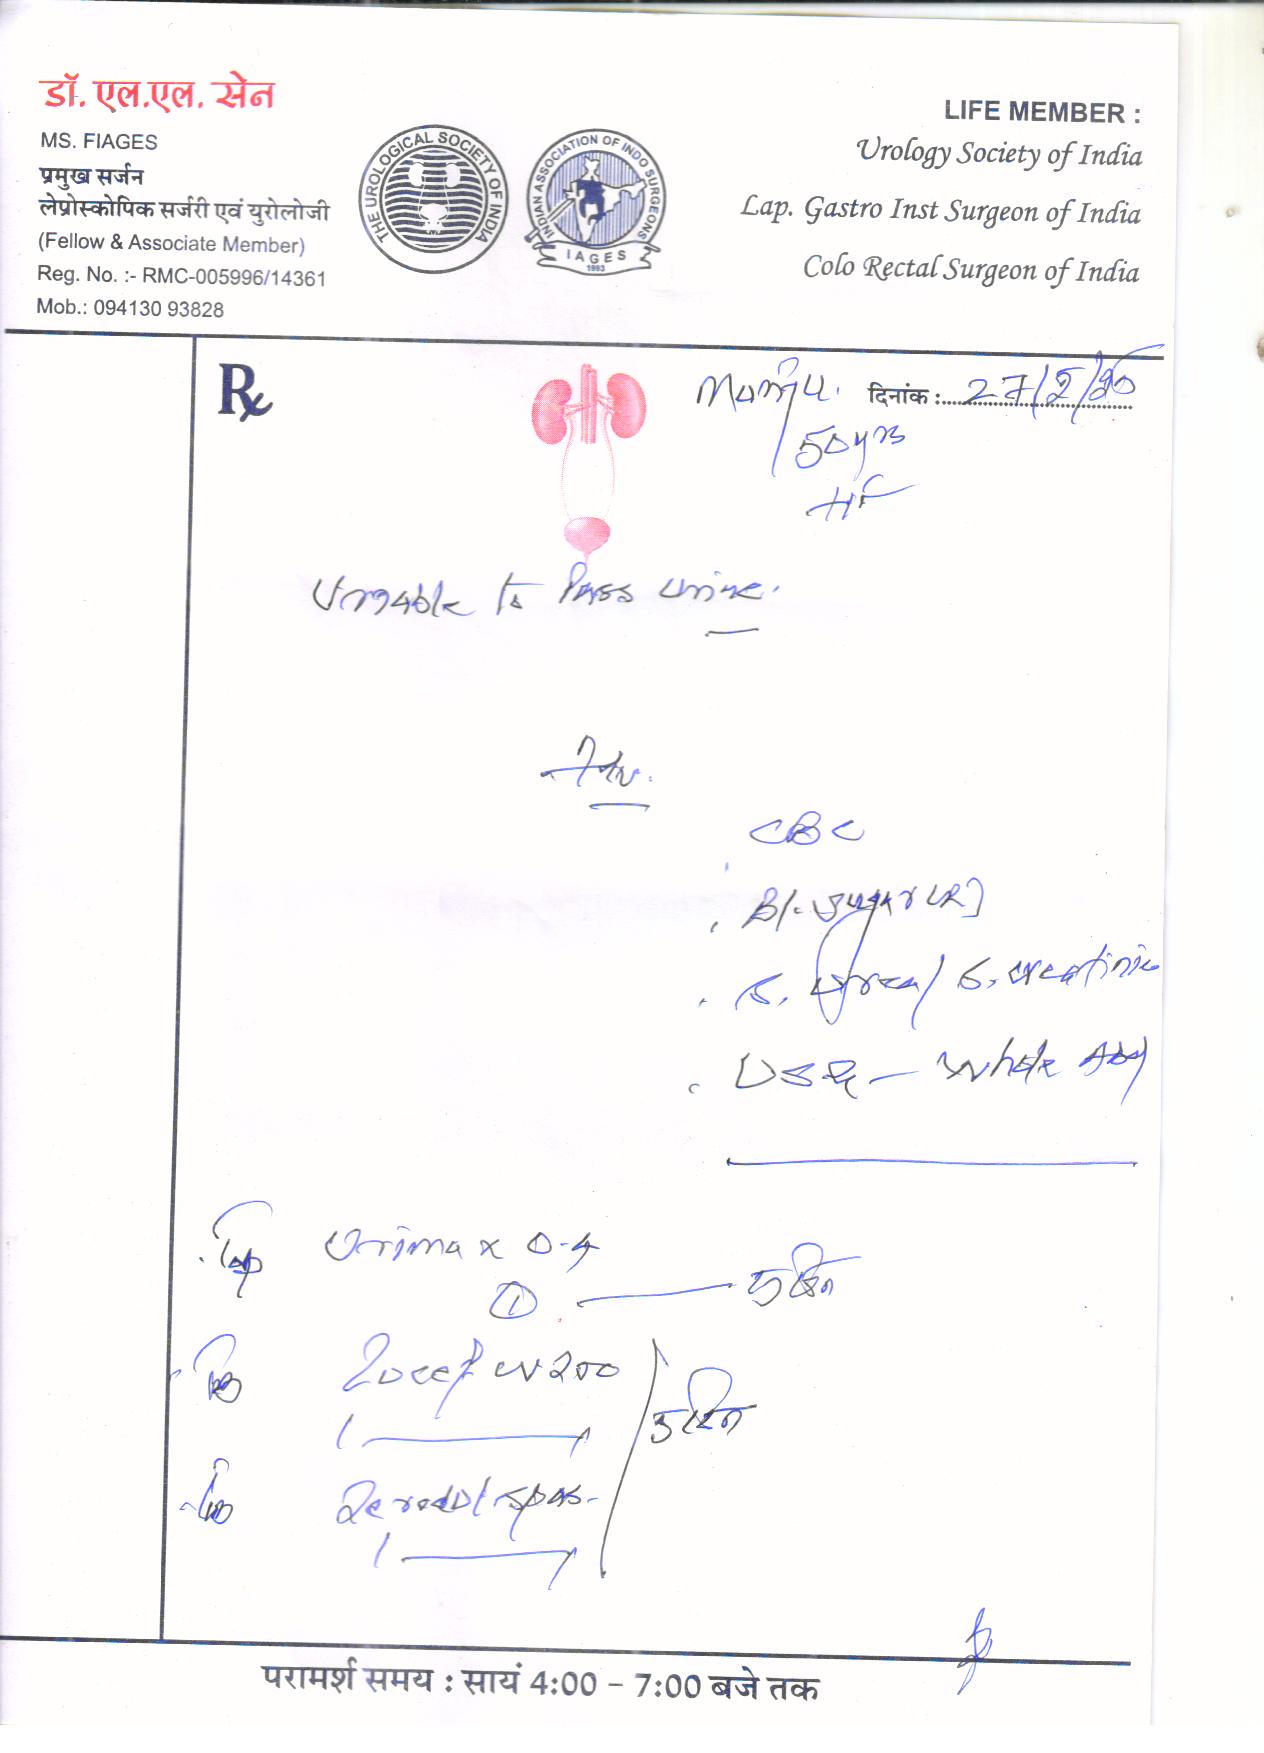 डॉ. एल.एल. सेन
MS. FIAGES
प्रमुख सर्जन
लेप्रोस्कोपिक सर्जरी एवं युरोलोजी
(Fellow & Associate Member)
Reg. No. :- RMC-005996/14361
Mob.: 094130 93828
THE UROLOGICAL SOCIETY OF INDIA
INDIAN ASSOCIATION OF INDO SURGEONS
IAGES
1993
LIFE MEMBER :
Urology Society of India
Lap. Gastro Inst Surgeon of India
Colo Rectal Surgeon of India
Rx
Manju. दिनांक : 27/2/20
50 yrs
Unable to Pass Urine.
Adv.
CBC
Bl. Sugar (R)
S. Urea / S. creatinine
USG - Whole Abd
Cap Urimax 0.4
① 5 दिन
Zocef cv 200
1
5 दिन
Zerodol spas
1
परामर्श समय : सायं 4:00 – 7:00 बजे तक